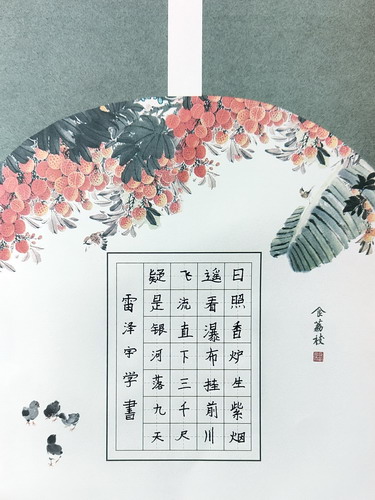 金荔枝
日照香炉生紫烟
遥看瀑布挂前川
飞流直下三千尺
疑是银河落九天
雷泽宇学書